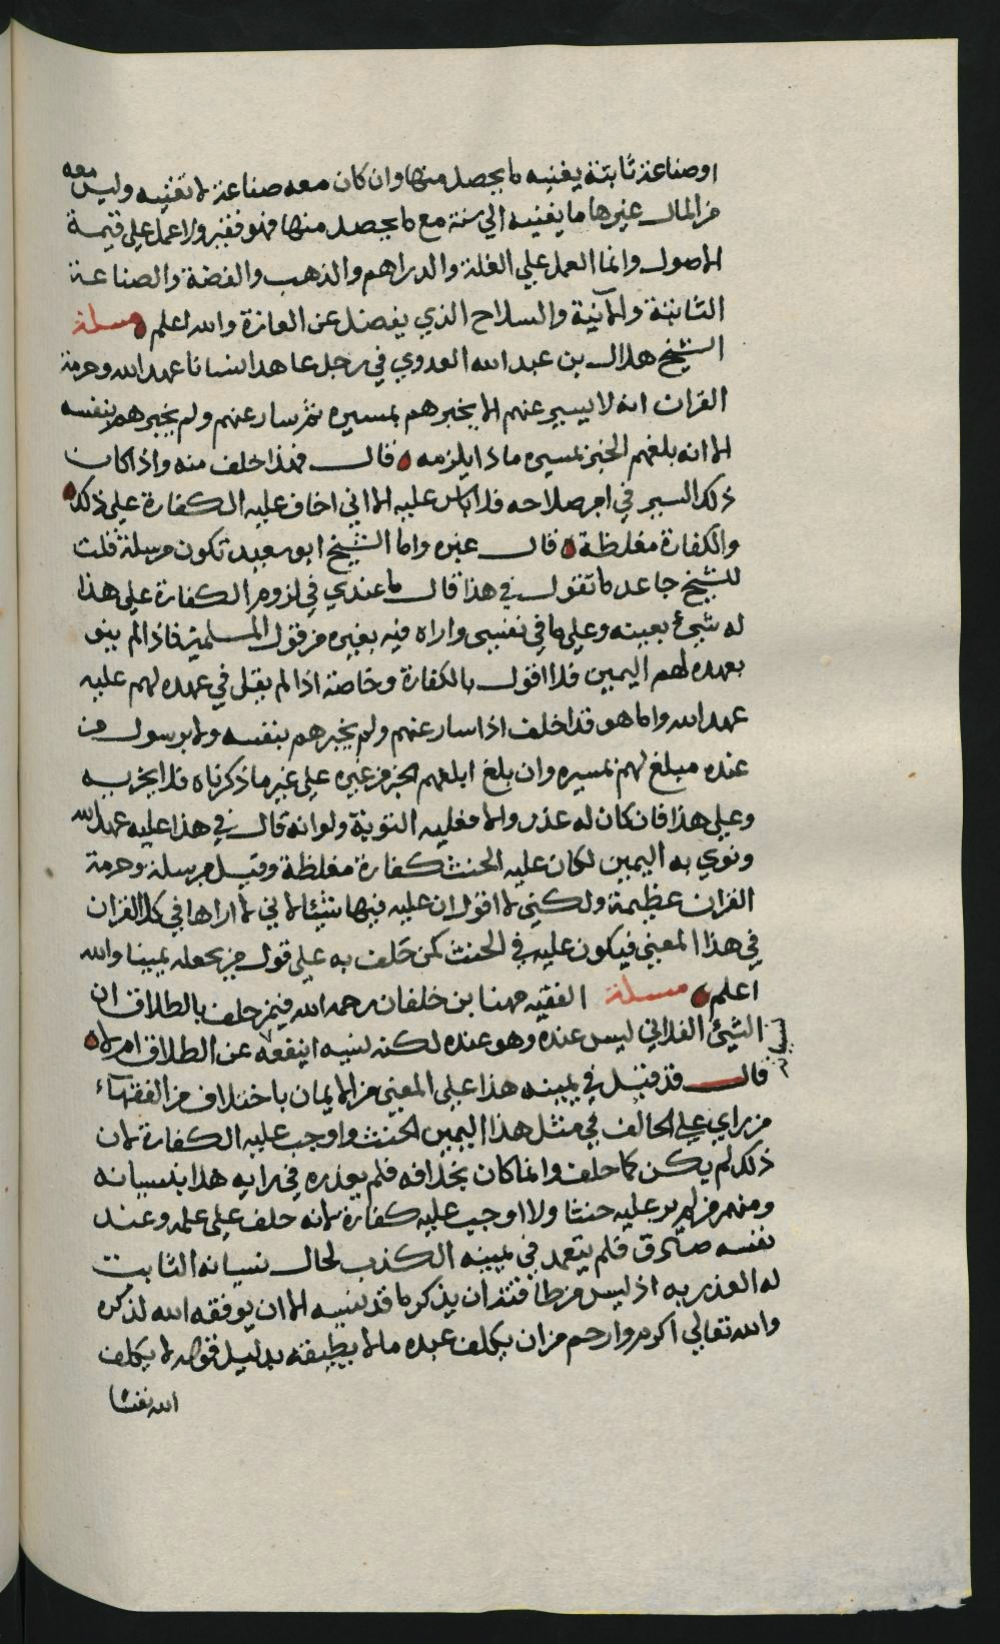 او صناعة ثابتة يغنيه ما يحصل منها وان كان معه صناعة لا تغنيه وليس معه
من المال غيرها ما يغنيه الي سنة مع ما يحصل منها فهو فقير ولا عمل علي قيمة
الاصول وانما العمل علي الغلة والدراهم والذهب والفضة والصناعة
الثابتة والآنية والسلاح الذي يفضل عن العازة والله اعلم مسلة
الشيخ هلال بن عبد الله العدوي في رجل عاهد انسانا عهد الله وحرمة
القران انه لا يسير عنهم الا يخبرهم بمسيره ثم سار عنهم ولم يخبرهم بنفسه
الا انه بلغهم الخبر بمسيره ماذا يلزمه قال فهذا خلف منه واذا كان
ذلك السير في امر صلاحه فلا باس عليه الا اني اخاف عليه الكفارة علي ذلك
والكفارة مغلظة قال غيره واما الشيخ ابو سعيد تكون مرسلة قلت
للشيخ جاعد ما تقول في هذا قال ما عندي في لزوم الكفارة علي هذا
له شيئ بعينه وعلي ما في نفسي واراه فيه بغيره من قول المسلمين فاذا لم ينو
بعهده لهم اليمين فلا اقول بالكفارة وخاصة اذا لم يقل في عهده لهم عليه
عهد الله وانما هو قد اخلف اذا سار عنهم ولم يخبرهم بنفسه ولا برسول من
عنده مبلغ لهم بمسيره وان بلغ ابلغهم الخبر من غيره علي غير ما ذكرناه فلا يخرب به
وعلي هذا فان كان له عذر والا فعليه التوبة ولو انه قال في هذا عليه عهد الله
ونوي به اليمين لكان عليه الحنث كفارة مغلظة وقيل مرسلة وحرمة
القران عظيمة ولكني لا اقول ان عليه فيها شيئا لاني لا اراها في كل القران
في هذا المعني فيكون عليه في الحنث كمن حلف به علي قول من يجعله يمينا والله
اعلم مسلة الفقيه مهنا بن خلفان رحمه الله فيمن حلف بالطلاق ان
الشيئ الفلاني ليس عنده وهو عنده لكنه نسيه اينفعه عن الطلاق ام لا
نسيانه
قال قد قيل في يمينه هذا علي المعني من الايمان باختلاف من الفقهاء
من راي علي الحالف في مثل هذا اليمين الحنث واوجب عليه الكفارة لان
ذلك لم يكن كما حلف وانما كان بخلافه فلم يعذره في رايه هذا بنسيانه
ومنهم من لم ير عليه حنثا ولا اوجب عليه كفارة لانه حلف علي علمه وعند
نفسه صادق فلم يتعمد في يمينه الكذب لحال نسيانه الثابت
له العذر به اذ ليس من طاقته ان يذكر ما قد نسيه الا ان يوفقه الله لذكره
والله تعالي اكرم وارحم من ان يكلف عبده ما لا يطيقه بدليل قوله لا يكلف
الله نفسا